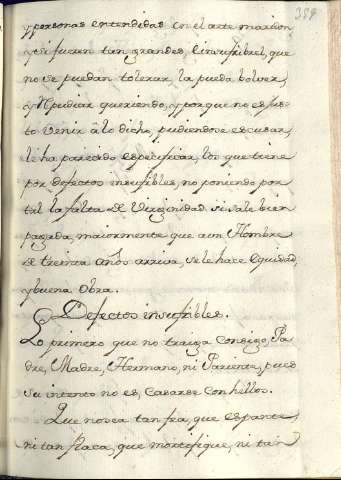 389
y personas entendidas en el arte marition
y si fuezen tan grandes, e insufribles, que
no se puedan tolerar, la pueda bolver,
y Repudiar queriendo, y porque no es jus-
to venir à lo dicho, pudiendose escusar,
le ha parecido espesificar, los que tiene
por defectos insufribles, no poniendo por
tal la falta de Virginidad si sale bien
pagada, maiormente que a un Hombre
de treinta años arriva, se le hace equidad,
y buena obra.
Defectos insufribles.
Lo primero que no traiga Consigo, Pa-
dre, Madre, Hermano, ni Pariente, pues
su intento no es, Casarse Con hellos.
Que no sea tan fea, que espante,
ni tan flaca, que mortifique, ni tan